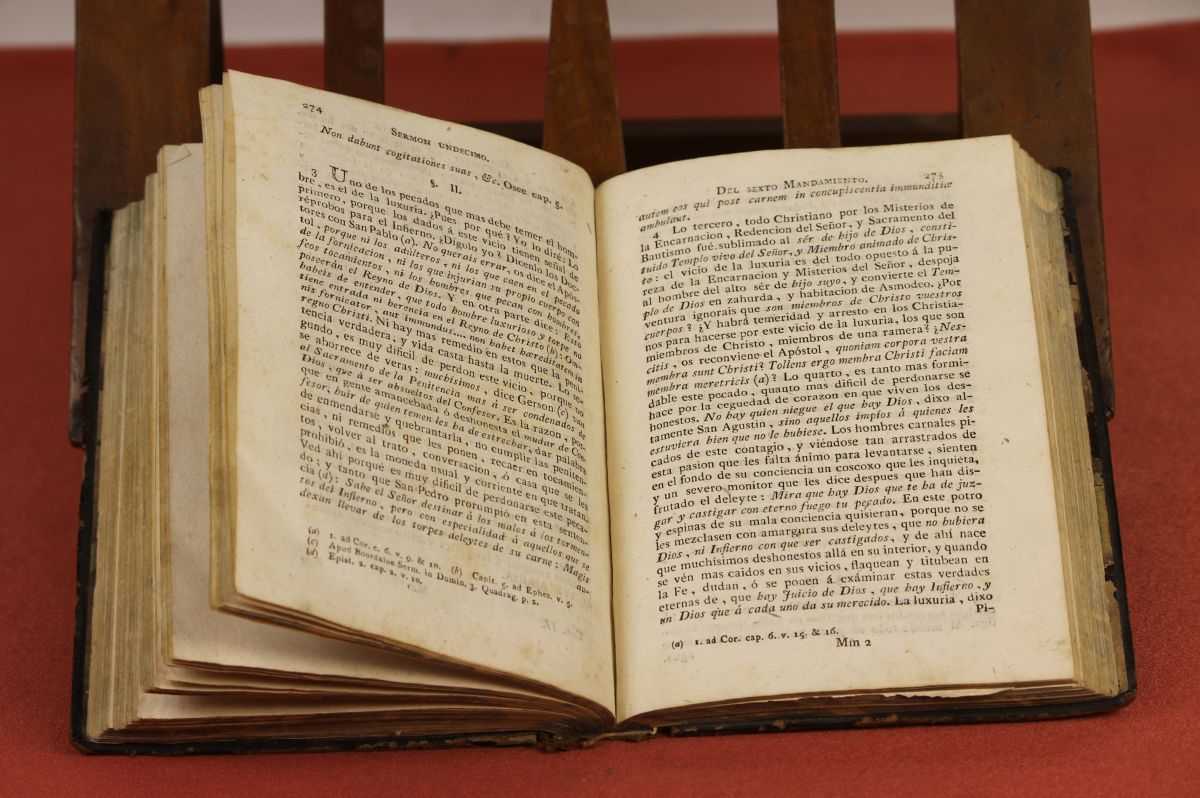 274
SERMON UNDECIMO.
Non dabunt cogitationes suas, &c. Osee. cap. 5.
§. II.
3 Uno de los pecados que mas debe temer el hom-
bre, es el de la luxuria. ¿Pues por qué? Yo lo diré: Lo
primero, porque los dados á este vicio tienen señal de
réprobos para el Infierno. ¿Digolo yo? Dicenlo los Doc-
tores con San Pablo (a). No querais errar, os dice el Após-
tol, porque ni los adúlteros, ni los que caen en el pecado
de la fornicacion, ni los que injurian su propio cuerpo con
feos tocamientos, ni los hombres que pecan con hombres,
poseerán el Reyno de Dios. Y en otra parte dice: Esto
habeis de entender, que todo hombre luxurioso y torpe no
tiene entrada ni herencia en el Reyno de Christo (b): Om-
nis fornicator, aut immundus.... non habet hæreditatem in
regno Christi. Ni hay mas remedio en estos que la peni-
tencia verdadera, y vida casta hasta la muerte. Lo se-
gundo, es muy dificil de perdon este vicio, porque no
se aborrece de veras: muchisimos, dice Gerson (c), van
al Sacramento de la Penitencia mas á ser condenados de
Dios, que á ser absueltos del Confesor. Es la razon, por-
que en gente amancebada ó deshonesta el mudar de Con-
fesor, huir de quien temen les ha de estrechar, dar palabra
de enmendarse y quebrantarla, no cumplir las peniten-
cias, ni remedios que les ponen, recaer en tocamien-
tos, volver al trato, conversacion, ó casa que se les
prohibió, es la moneda usual y corriente en que tratan.
Ved ahí porqué es muy dificil de perdonarse este peca-
do; y tanto que San Pedro prorumpió en esta senten-
cia (d): Sabe el Señor destinar á los malos á los tormen-
tos del Infierno, pero con especialidad á aquellos que se
dexan llevar de los torpes deleytes de su carne: Magis
au-
(a) 1. ad Cor. c. 6. v. 9. & 10. (b) Capit. 5. ad Ephes. v. 5.
(c) Apud Bourdaloe Serm. in Domin. 3. Quadrag. p. 2.
(d) Epist. 2. cap. 2. v. 10.
DEL SEXTO MANDAMIENTO. 275
autem eos qui post carnem in concupiscentia immunditiæ
ambulant.
4 Lo tercero, todo Christiano por los Misterios de
la Encarnacion, Redencion del Señor, y Sacramento del
Bautismo fué sublimado al sér de hijo de Dios, consti-
tuido Templo vivo del Señor, y Miembro animado de Chris-
to: el vicio de la luxuria es del todo opuesto á la pu-
reza de la Encarnacion y Misterios del Señor, despoja
al hombre del alto sér de hijo suyo, y convierte el Tem-
plo de Dios en zahurda, y habitacion de Asmodeo. ¿Por
ventura ignorais que son miembros de Christo vuestros
cuerpos? ¿Y habrá temeridad y arresto en los Christia-
nos para hacerse por este vicio de la luxuria, los que son
miembros de Christo, miembros de una ramera? ¿Nes-
citis, os reconviene el Apóstol, quoniam corpora vestra
membra sunt Christi? Tollens ergo membra Christi faciam
membra meretricis (a)? Lo quarto, es tanto mas formi-
dable este pecado, quanto mas dificil de perdonarse se
hace por la ceguedad de corazon en que viven los des-
honestos. No hay quien niegue el que hay Dios, dixo al-
tamente San Agustin, sino aquellos impíos á quienes les
estuviera bien que no le hubiese. Los hombres carnales pi-
cados de este contagio, y viéndose tan arrastrados de
esta pasion que les falta ánimo para levantarse, sienten
en el fondo de su conciencia un coscoxo que les inquieta,
y un severo monitor que les dice despues que han dis-
frutado el deleyte: Mira que hay Dios que te ha de juz-
gar y castigar con eterno fuego tu pecado. En este potro
y espinas de su mala conciencia quisieran, porque no se
les mezclasen con amargura sus deleytes, que no hubiera
Dios, ni Infierno con que ser castigados, y de ahí nace
que muchísimos deshonestos allá en su interior, y quando
se vén mas caidos en sus vicios, flaquean y titubean en
la Fe, dudan, ó se ponen á exâminar estas verdades
eternas de, que hay Juicio de Dios, que hay Infierno, y
un Dios que á cada uno da su merecido. La luxuria, dixo
Pi-
(a) 1. ad Cor. cap. 6. v. 15. & 16.
Mm 2